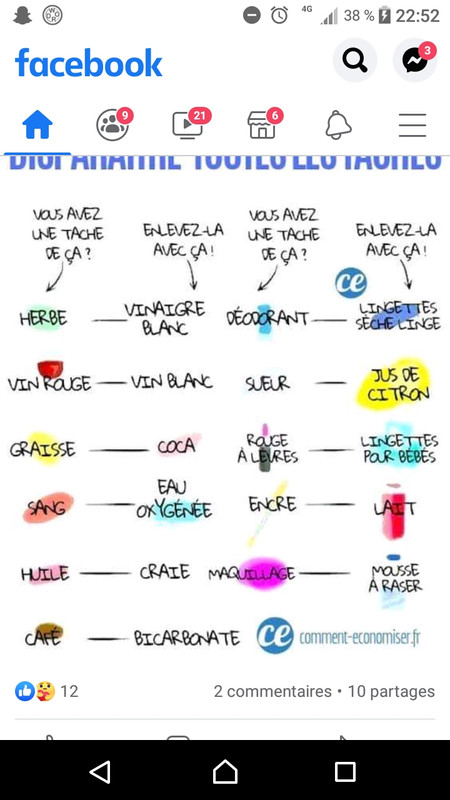 4G 38 % 22:52
facebook
3
9 21 6
DISPARAÎTRE TOUTES LES TACHES
VOUS AVEZ
UNE TACHE
DE ÇA ?
ENLEVEZ-LA
AVEC ÇA !
VOUS AVEZ
UNE TACHE
DE ÇA ?
ENLEVEZ-LA
AVEC ÇA !
ce
HERBE — VINAIGRE
BLANC
DÉODORANT — LINGETTES
SÈCHE LINGE
VIN ROUGE — VIN BLANC
SUEUR — JUS DE
CITRON
GRAISSE — COCA
ROUGE
À LÈVRES — LINGETTES
POUR BÉBÉS
SANG — EAU
OXYGÉNÉE
ENCRE — LAIT
HUILE — CRAIE
MAQUILLAGE — MOUSSE
À RASER
CAFÉ — BICARBONATE
ce comment-economiser.fr
12
2 commentaires • 10 partages